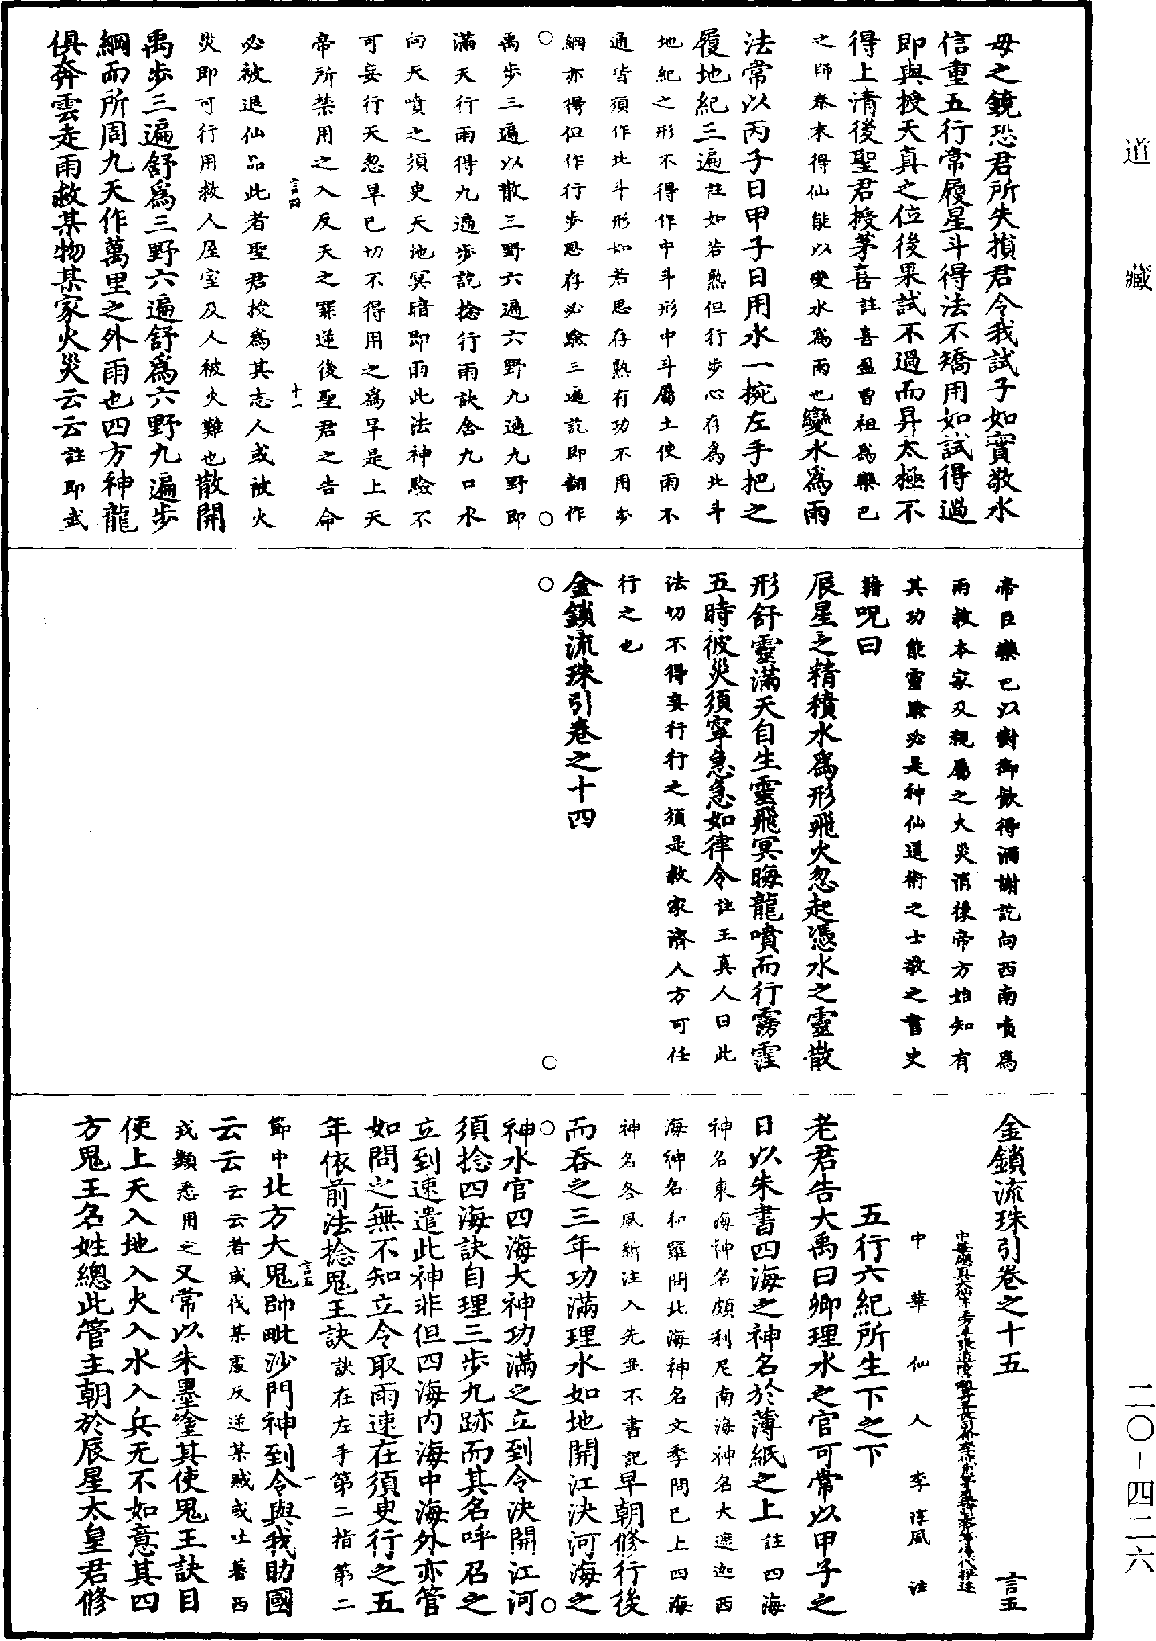 道藏
母之鏡恐君所失損君令我試子如實敬水
信重五行常履星斗得法不矯用如試得過
即與授天真之位後果試不過而昇太極不
得上清後聖君授茅喜註喜盈曾祖為欒巴
之師泰本得仙能以變水為雨也變水為雨
法常以丙子日甲子日用水一椀左手把之
履地紀三遍註如若熟但行步心存為北斗
地紀之形不得作中斗形中斗屬土使雨不
通皆須作北斗形如若思存熟有功不用步
綱亦得但作行步思存必驗三遍訖即翻作
禹步三遍以散三野六遍六野九遍九野即
滿天行雨得九遍步訖捻行雨訣含九口水
向天噴之須臾天地冥暗即雨此法神驗不
可妄行天忽旱已切不得用之為旱是上天
帝所禁用之入反天之罪逆後聖君之告命
言四 十一
必被退仙品此者聖君授為其志人或被火
災即可行用救人屋室及人被火難也散開
禹步三遍舒為三野六遍舒為六野九遍步
綱而所周九天作萬里之外雨也四方神龍
俱奔雲走雨救某物某家火災云云註即武
帝臣欒巴以對御飲得酒謝訖向西南噴為
雨救本家及親屬之火災消後帝方始知有
其功能靈驗必是神仙道術之士敬之書史
籍呪曰
辰星之精積水為形飛火忽起憑水之靈散
形舒靈滿天自生雲飛冥晦龍噴而行霧霪
五時彼災須寧急急如律令註王真人曰此
法切不得妄行行之須是救家濟人方可任
行之也
金鎖流珠引卷之十四
金鎖流珠引卷之十五 言五
中華仙人李淳風註
五行六紀所生下之下
老君告大禹曰卿理水之官可常以甲子之
日以朱書四海之神名於薄紙之上註四海
神名東海神名頗利尼南海神名大遮迦西
海神名和羅問北海神名文季問已上四海
神名各風新注入先並不書記早朝修行後
而吞之三年功滿理水如地開江決河海之
神水官四海大神功滿之立到令決開江河
須捻四海訣自理三步九跡而其名呼召之
立到速遣此神非但四海內海中海外亦管
如問之無不知立令取雨速在須臾行之五
年依前法捻鬼王訣訣在左手第二指第二
言五 一
節中北方大鬼帥毗沙門神到令與我助國
云云云云者或伐某處反逆某賊或吐蕃西
戎類悉用之又常以朱墨塗其使鬼王訣目
使上天入地入火入水入兵无不如意其四
方鬼王名姓總此管主朝於辰星太皇君修
二〇-四二六